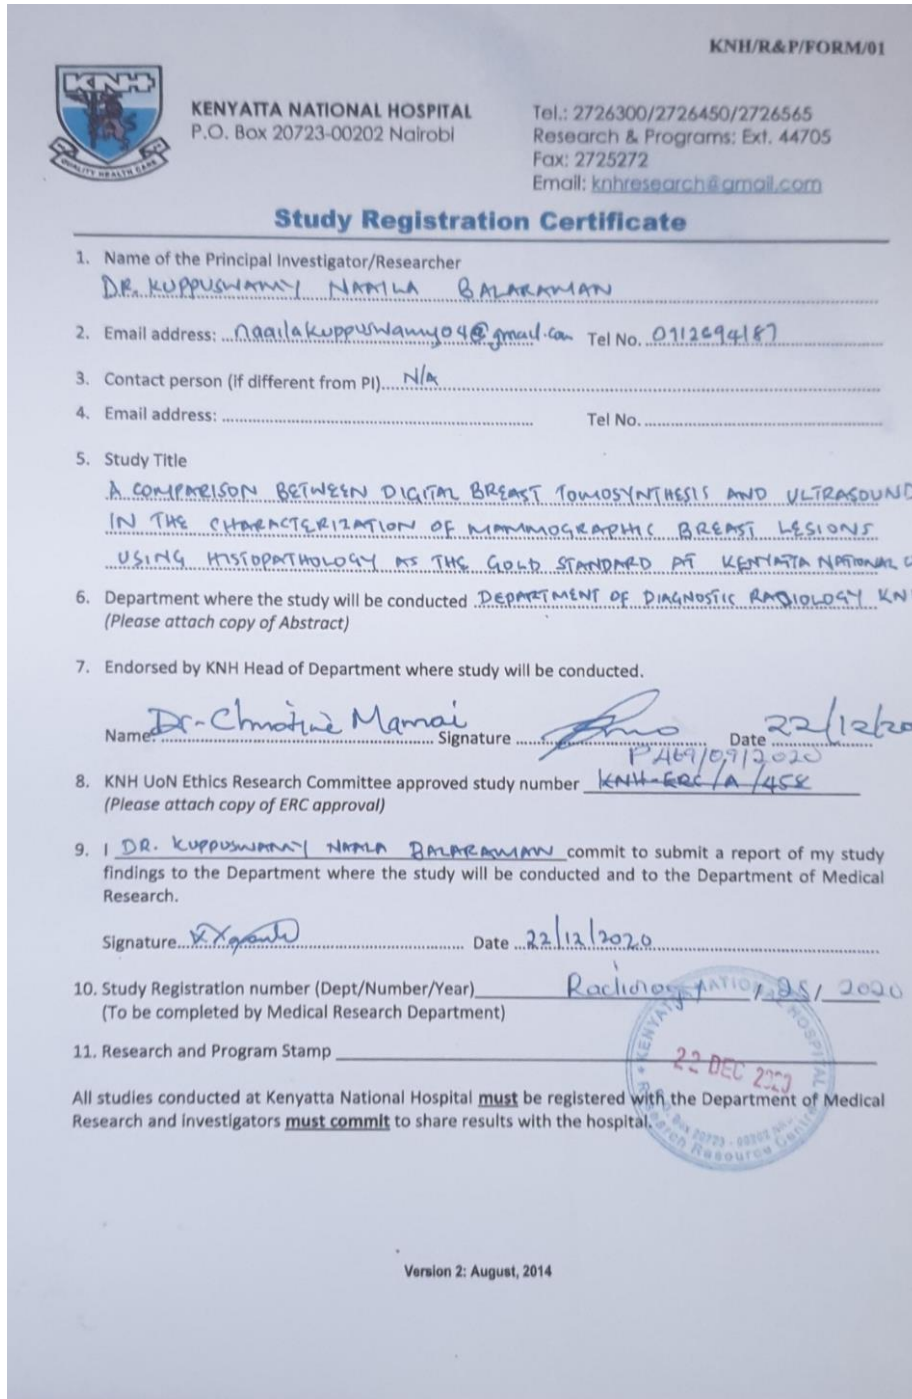 KNH/R&P/FORM/01
KNH
QUALITY HEALTH CARE
KENYATTA NATIONAL HOSPITAL
P.O. Box 20723-00202 Nairobi
Tel.: 2726300/2726450/2726565
Research & Programs: Ext. 44705
Fax: 2725272
Email: knhresearch@gmail.com
Study Registration Certificate
1. Name of the Principal Investigator/Researcher
DR. KUPPUSWAMY NAAILA BALARAMAN
2. Email address: naailakuppuswamy04@gmail.com Tel No. 0712694187
3. Contact person (if different from PI) N/A
4. Email address: Tel No.
5. Study Title
A COMPARISON BETWEEN DIGITAL BREAST TOMOSYNTHESIS AND ULTRASOUND
IN THE CHARACTERIZATION OF MAMMOGRAPHIC BREAST LESIONS
USING HISTOPATHOLOGY AS THE GOLD STANDARD AT KENYATTA NATIONAL
6. Department where the study will be conducted DEPARTMENT OF DIAGNOSTIC RADIOLOGY KN
(Please attach copy of Abstract)
7. Endorsed by KNH Head of Department where study will be conducted.
Name: Dr- Christine Mamai Signature Date 22/12/20
P469/09/2020
8. KNH UoN Ethics Research Committee approved study number KNH-ERC/A/458
(Please attach copy of ERC approval)
9. I DR. KUPPUSWAMY NAAILA BALARAMAN commit to submit a report of my study
findings to the Department where the study will be conducted and to the Department of Medical
Research.
Signature Date 22/12/2020
10. Study Registration number (Dept/Number/Year) Radiology / 25 / 2020
(To be completed by Medical Research Department)
11. Research and Program Stamp
KENYATTA NATIONAL HOSPITAL
22 DEC 2020
Box 20723 - 00202
Research Resource Centre
All studies conducted at Kenyatta National Hospital must be registered with the Department of Medical
Research and investigators must commit to share results with the hospital.
Version 2: August, 2014